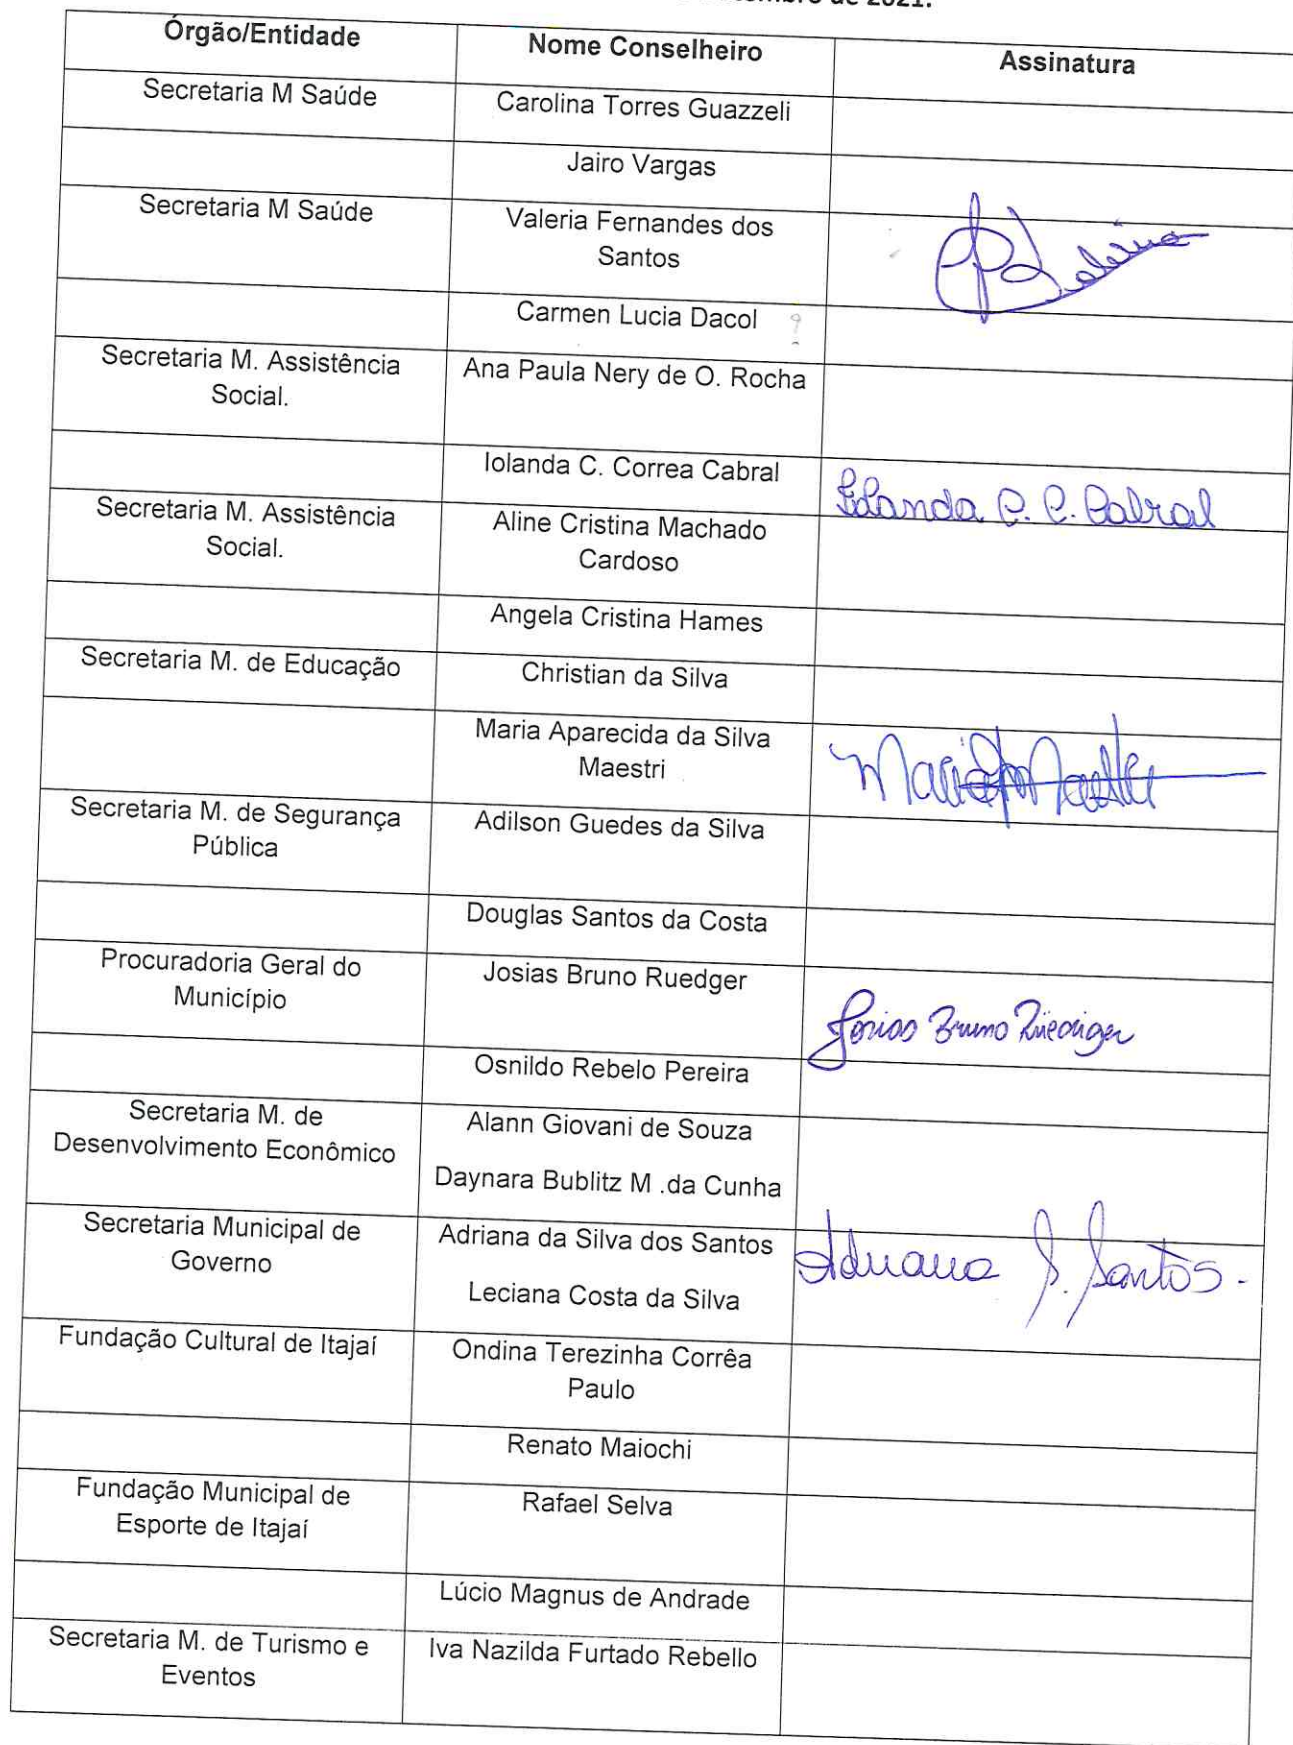 de 2021.
Órgão/Entidade
Nome Conselheiro
Assinatura
Secretaria M Saúde
Carolina Torres Guazzeli
Jairo Vargas
Secretaria M Saúde
Valeria Fernandes dos
Santos
Valéria
Carmen Lucia Dacol ?
Secretaria M. Assistência
Social.
Ana Paula Nery de O. Rocha
Iolanda C. Correa Cabral
Iolanda C. C. Cabral
Secretaria M. Assistência
Social.
Aline Cristina Machado
Cardoso
Angela Cristina Hames
Secretaria M. de Educação
Christian da Silva
Maria Aparecida da Silva
Maestri
Maria Ap Maestri
Secretaria M. de Segurança
Pública
Adilson Guedes da Silva
Douglas Santos da Costa
Procuradoria Geral do
Município
Josias Bruno Ruedger
Josias Bruno Rüediger
Osnildo Rebelo Pereira
Secretaria M. de
Desenvolvimento Econômico
Alann Giovani de Souza
Daynara Bublitz M .da Cunha
Secretaria Municipal de
Governo
Adriana da Silva dos Santos
Leciana Costa da Silva
Adriana S. Santos.
Fundação Cultural de Itajaí
Ondina Terezinha Corrêa
Paulo
Renato Maiochi
Fundação Municipal de
Esporte de Itajaí
Rafael Selva
Lúcio Magnus de Andrade
Secretaria M. de Turismo e
Eventos
Iva Nazilda Furtado Rebello